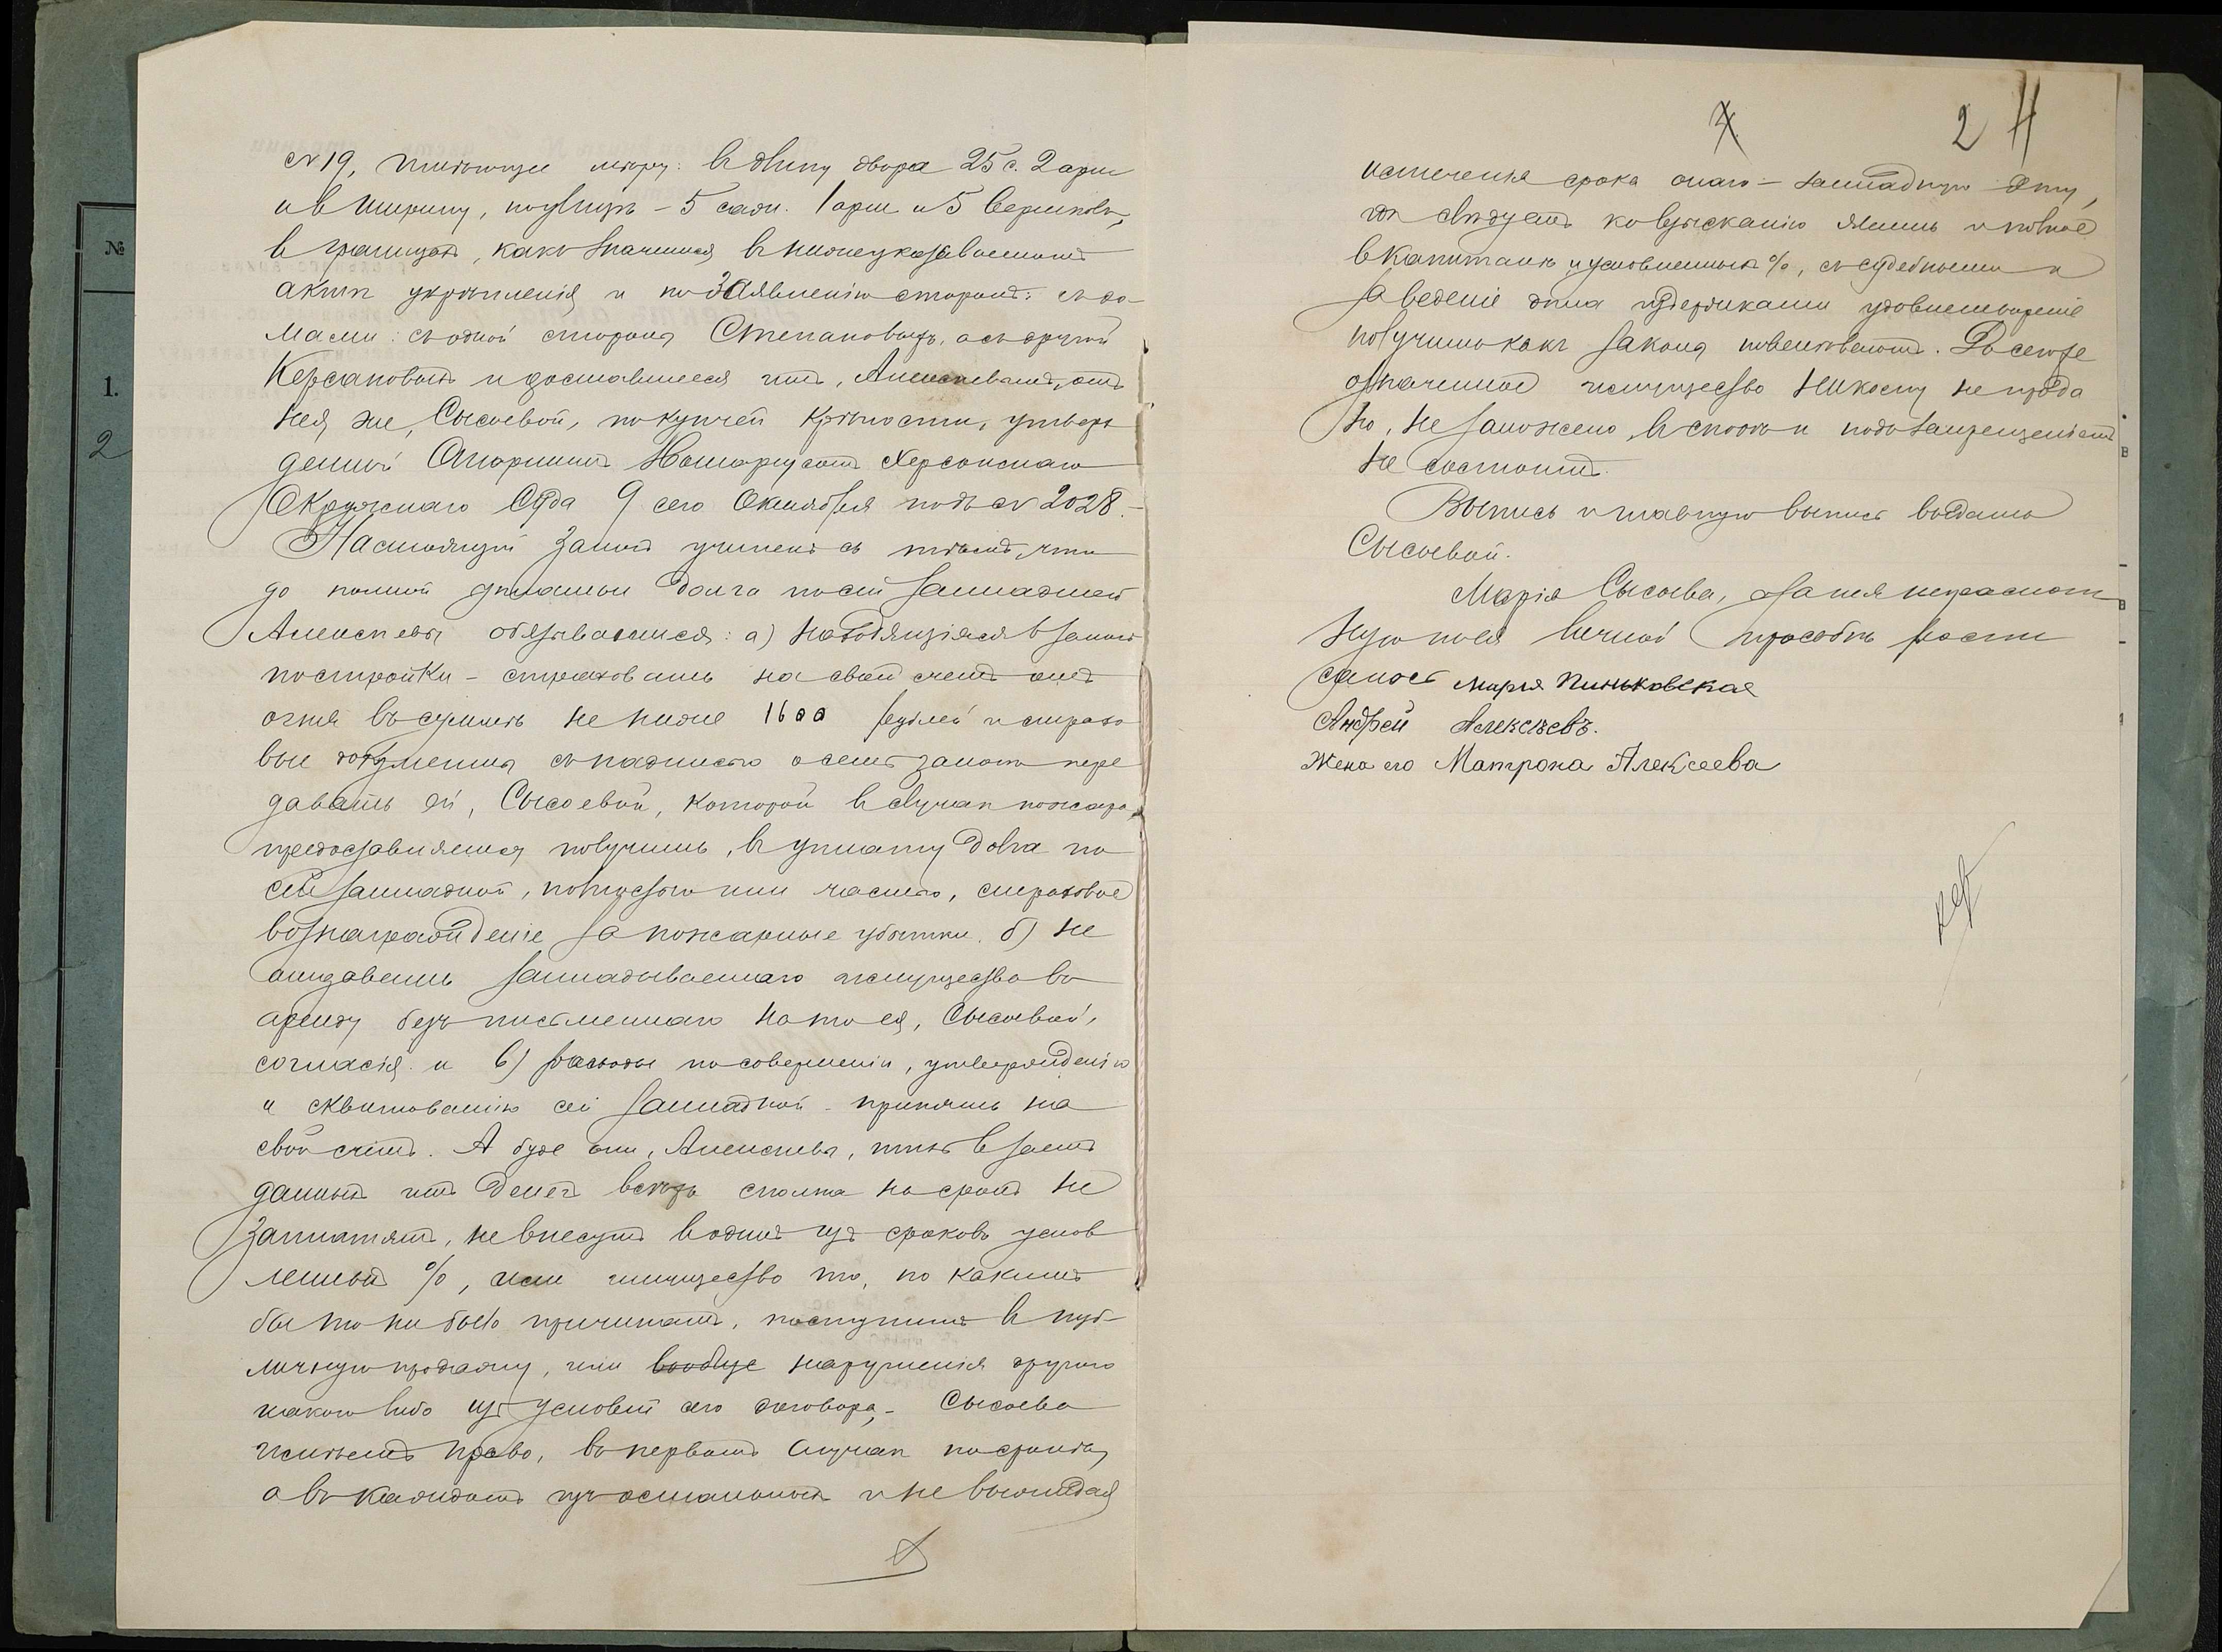 №
1.
2
№ 19, имѣющее мѣру: въ длину двора 25 с. 2 арш
и въ ширину, по улицѣ - 5 саж. 1 арш и 5 вершковъ,
въ границахъ, какъ значится въ нижеуказываемомъ
актѣ укрѣпленія и по заявленію сторонъ: съ до-
мами: съ одной стороны Степановыхъ, а съ другой
Керсановыхъ и доставшееся имъ, Алексѣевымъ, отъ
нея же, Сысоевой, по купчей крѣпости, утверж
денной Старшимъ Нотаріусомъ Херсонскаго
Окружнаго Суда 9 сего Октября подъ № 2028.-
Настоящій залогъ учиненъ съ тѣмъ, что
до полной уплаты долга по сей закладной
Алексѣевы обязываются: а) находящіяся въ залогѣ
постройки - страховать на свой счетъ отъ
огня въ суммѣ не ниже 1600 рублей и страхо
вые документы съ надписью о семъ залогѣ пере
давать ей, Сысоевой, которой въ случаѣ пожара
предоставляется получить, въ уплату долга по
сей закладной, полностью или частью, страховое
вознагражденіе за пожарные убытки. б) не
отдавать закладываемаго имущества въ
аренду безъ письменнаго на то ея, Сысоевой,
согласія. и в) расходы по совершенію, утвержденію
и сквитованію сей закладной - принять на
свой счетъ. А буде они, Алексѣевы, тѣхъ взаемъ
данныхъ имъ денегъ всѣхъ сполна на срокъ не
заплатятъ, не внесутъ въ одинъ изъ сроковъ услов
ленныхъ %, или имущество то, по какимъ
бы то ни было причинамъ, поступитъ въ пуб-
личную продажу, или вообще нарушенія другого
какого либо изъ условій сего договора, - Сысоева
имѣетъ право, въ первомъ случаѣ по срокѣ,
а въ каждомъ изъ остальныхъ и не выжидая
2
истеченія срока онаго - закладную эту,
гдѣ слѣдуетъ ко взысканію явить и полное
въ капиталѣ и условленныхъ %, съ судебными и
за веденіе дѣла издержками удовлетвореніе
получить какъ законы повелѣваютъ. До сего же
означенное имущество никому не прода
но, не заложено, въ спорѣ и подъ запрещеніемъ
не состоитъ.
Выпись и главную выпись выдать
Сысоевой.
Марія Сысоева, а за нея неграмот
ную по ея личной просьбѣ роспи
салась Марья Пиньковская
Андрей Алексѣевъ.
Жена его Матрона Алексеева